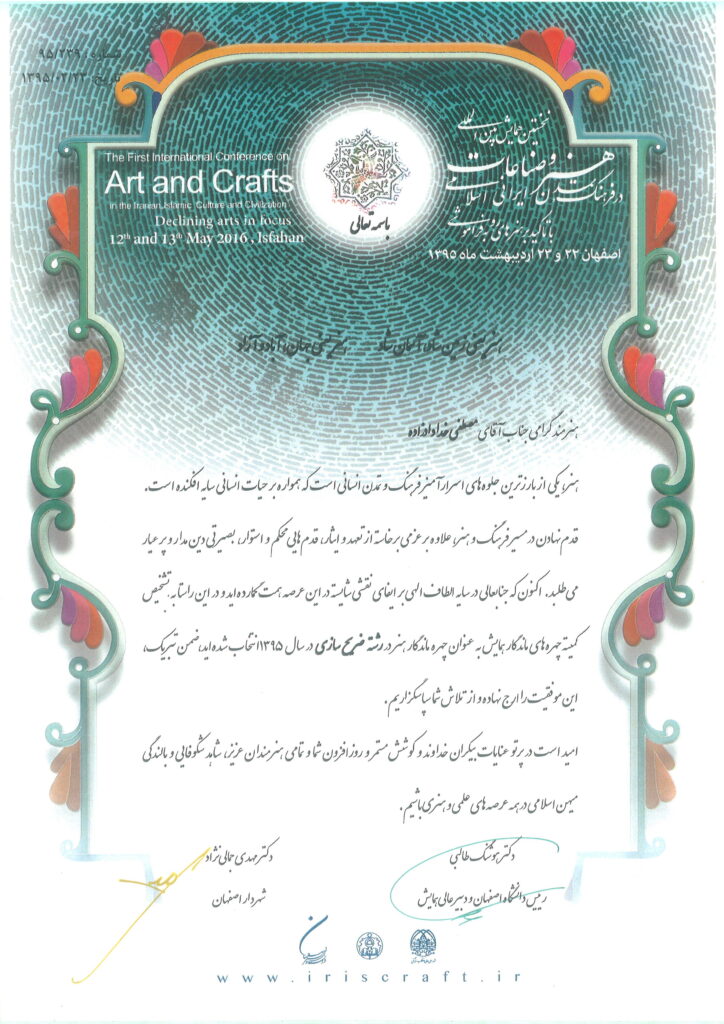 شماره: ۹۵/۲۳۹
تاریخ: ۱۳۹۵/۰۲/۲۳
نخستین همایش بین المللی
هنر و صناعات
در فرهنگ و تمدن ایرانی اسلامی
با تاکید بر هنرهای رو به فراموشی
اصفهان ۲۲ و ۲۳ اردیبهشت ماه ۱۳۹۵
The First International Conference on
Art and Crafts
in the Iranian,Islamic Culture and Civilization
Declining arts in focus
12th and 13th May 2016 , Isfahan
باسمه تعالی
هنرمند گرامی جناب آقای مصطفی خدادادزاده
هنر، یکی از بارزترین جلوه های اسرارآمیز فرهنگ و تمدن انسانی است که همواره بر حیات انسانی سایه افکنده است.
قدم نهادن در مسیر فرهنگ و هنر، علاوه بر عزمی برخاسته از تعهد و ایثار، قدم هایی محکم و استوار، بصیرتی دین مدار و پر عیار
می طلبد. اکنون که جنابعالی در سایه الطاف الهی بر ایفای نقشی شایسته در این عرصه همت گمارده اید و در این راستا به تشخیص
کمیته چهره های ماندگار همایش به عنوان چهره ماندگار هنر در رشته ضریح سازی در سال ۱۳۹۵ انتخاب شده اید، ضمن تبریک،
این موفقیت را ارج نهاده و از تلاش شما سپاسگزاریم.
امید است در پرتو عنایات بیکران خداوند و کوشش مستمر و روز افزون شما و تمامی هنرمندان عزیز، شاهد شکوفایی و بالندگی
میهن اسلامی در همه عرصه های علمی و هنری باشیم.
دکتر هوشنگ طالبی
رییس دانشگاه اصفهان و دبیر عالی همایش
دکتر مهدی جمالی نژاد
شهردار اصفهان
www.iriscraft.ir